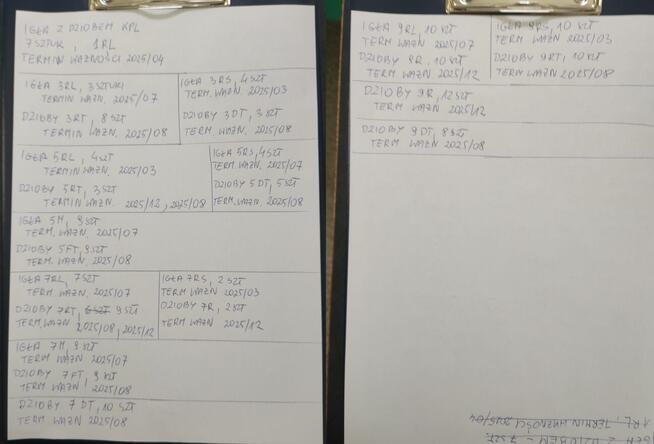 IGŁA Z DZIOBEM KPL
7 SZTUK, 1RL
TERMIN WAŻNOŚCI 2025/04
IGŁA 3RL, 3 SZTUKI
TERMIN WAŻN. 2025/07
DZIOBY 3RT, 8 SZT
TERMIN WAŻN. 2025/08
IGŁA 3RS, 4 SZT
TERM. WAŻN 2025/03
DZIOBY 3DT, 3 SZT
TERM. WAŻN 2025/08
IGŁA 5RL, 4 SZT
TERMIN WAŻN 2025/03
DZIOBY 5RT, 3 SZT
TERMIN WAŻN. 2025/12, 2025/08
IGŁA 5RS, 4 SZT
TERM. WAŻN. 2025/07
DZIOBY 5DT, 5 SZT
TERM. WAŻN. 2025/08
IGŁA 5M, 9 SZT
TERM. WAŻN. 2025/07
DZIOBY 5FT, 9 SZT
TERM. WAŻN 2025/08
IGŁA 7RL, 7 SZT
TERM WAŻN. 2025/07
DZIOBY 7RT, 6 SZT 9 SZT
TERM. WAŻN 2025/08, 2025/12
IGŁA 7RS, 2 SZT
TERM WAŻN 2025/03
DZIOBY 7R, 2 SZT
TERM WAŻN 2025/12
IGŁA 7M, 9 SZT
TERM WAŻN 2025/07
DZIOBY 7FT, 9 SZT
TERM. WAŻN 2025/08
DZIOBY 7 DT, 10 SZT
TERM. WAŻN 2025/08
IGŁA 9RL, 10 SZT
TERM WAŻN 2025/07
DZIOBY 9R, 10 SZT
TERM. WAŻN 2025/12
IGŁA 9RS, 10 SZT
TERM WAŻN 2025/03
DZIOBY 9RT, 10 SZT
TERM WAŻN 2025/08
DZIOBY 9R, 12 SZT
TERM. WAŻN 2025/12
DZIOBY 9 DT, 8 SZT
TERM WAŻN 2025/08
IGŁA Z DZIOBEM - 7 SZT
1RL, TERMIN WAŻNOŚCI 2025/04